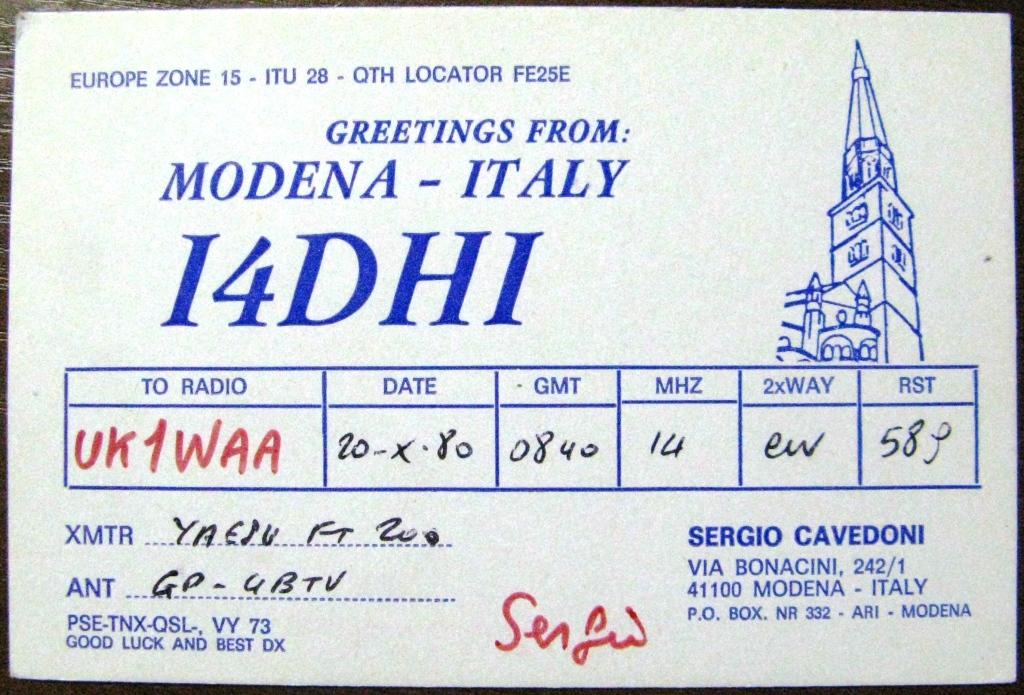 EUROPE ZONE 15 - ITU 28 - QTH LOCATOR FE25E
GREETINGS FROM:
MODENA - ITALY
I4DHI
TO RADIO DATE GMT MHZ 2xWAY RST
UK1WAA 20-X-80 0840 14 CW 589
XMTR YAESU FT 200
ANT GP-4BTV
PSE-TNX-QSL-, VY 73
GOOD LUCK AND BEST DX
Sergio
SERGIO CAVEDONI
VIA BONACINI, 242/1
41100 MODENA - ITALY
P.O. BOX. NR 332 - ARI - MODENA